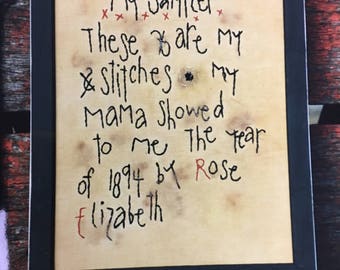 My Sampler
x x x x x x x
These x are my
x stitches my
Mama showed
to me The Year
of 1894 by Rose
Elizabeth